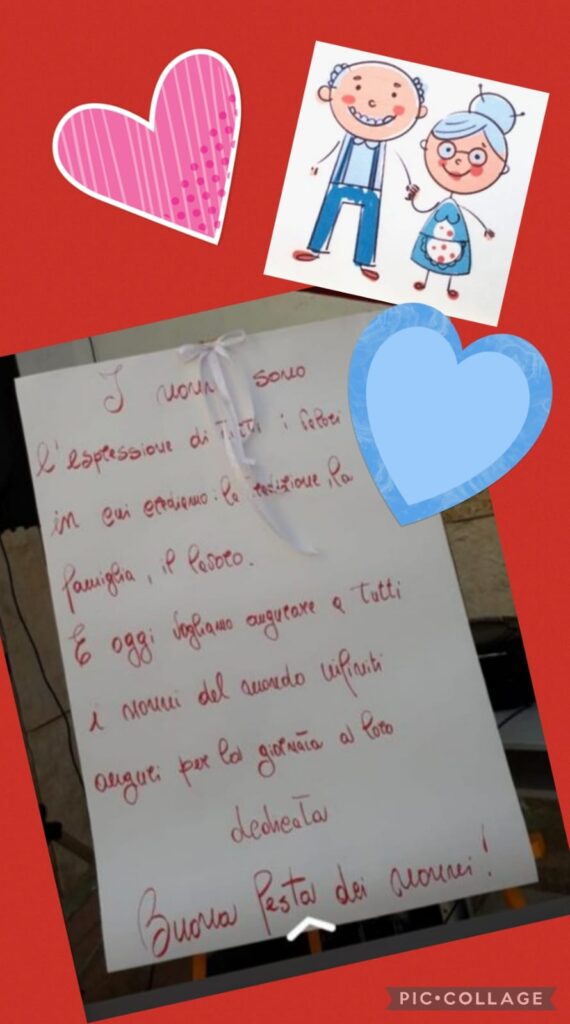 I nonni sono
l'espressione di Tutti i valori
in cui crediamo: la tradizione, la
famiglia, il lavoro.
E oggi vogliamo augurare a Tutti
i nonni del mondo infiniti
auguri per la giornata a loro
dedicata
Buona Festa dei nonni!
PIC•COLLAGE